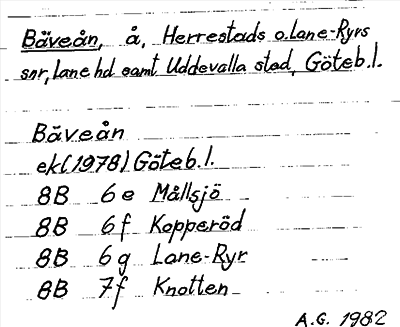 Bäveån, å, Herrestads o. Lane-Ryrs
snr, Lane hd samt Uddevalla stad, Göteb.l.
Bäveån
ek(1978) Göteb.l.
8B 6e Mållsjö
8B 6f Kopperöd
8B 6g Lane-Ryr
8B 7f Knotten
A.G. 1982